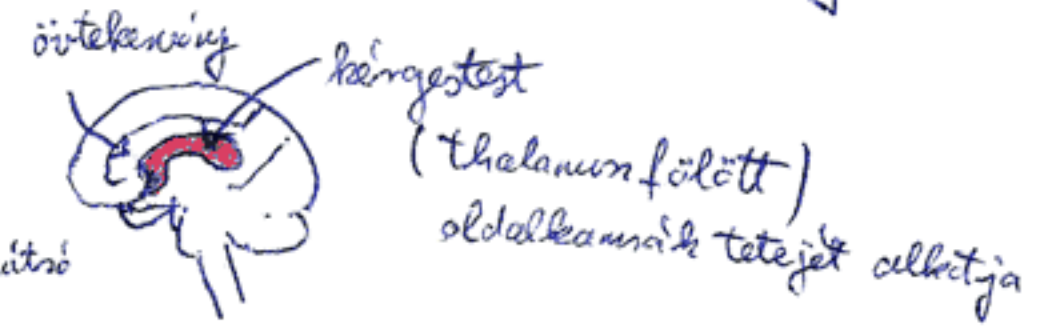 övtekervény
kérgestest
(thalamus fölött)
oldalkamrák tetejét alkotja
átsó